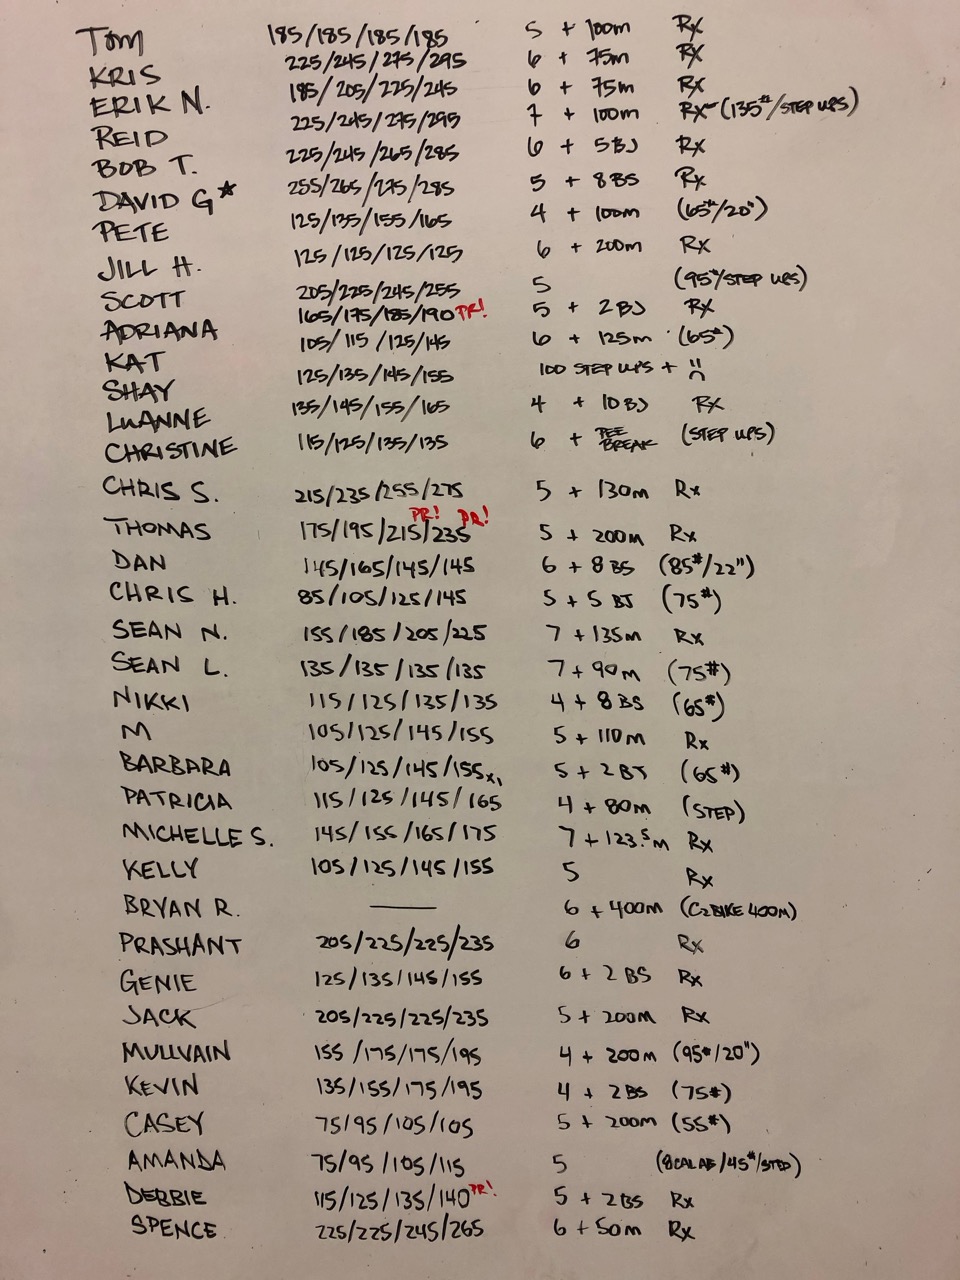 Tom 185/185/185/185 5 + 100m Rx
KRIS 225/245/275/295 6 + 75m Rx
ERIK N. 185/205/225/245 6 + 75m Rx
REID 225/245/275/295 7 + 100m Rx (135#/STEP UPS)
BOB T. 225/245/265/285 6 + 5BJ Rx
DAVID G* 255/265/275/285 5 + 8BS Rx
PETE 125/135/155/165 4 + 100m (65#/20")
JILL H. 125/125/125/125 6 + 200m Rx
SCOTT 205/225/245/255 5 (95#/STEP UPS)
ADRIANA 165/175/185/190 PR! 5 + 2BJ Rx
KAT 105/115/125/145 6 + 125m (65#)
SHAY 125/135/145/155 100 STEP UPS + :(
LuANNE 135/145/155/165 4 + 10BJ Rx
CHRISTINE 115/125/135/135 6 + PEE BREAK (STEP UPS)
CHRIS S. 215/235/255/275 5 + 130m Rx
THOMAS 175/195/215/235 PR! PR! 5 + 200m Rx
DAN 145/165/145/145 6 + 8BS (85#/22")
CHRIS H. 85/105/125/145 5 + 5 BJ (75#)
SEAN N. 155/185/205/225 7 + 135m Rx
SEAN L. 135/135/135/135 7 + 90m (75#)
NIKKI 115/125/135/135 4 + 8BS (65#)
M 105/125/145/155 5 + 110m Rx
BARBARA 105/125/145/155x1 5 + 2BJ (65#)
PATRICIA 115/125/145/165 4 + 80m (STEP)
MICHELLE S. 145/155/165/175 7 + 123.5m Rx
KELLY 105/125/145/155 5 Rx
BRYAN R. — 6 + 400m (C2BIKE 400M)
PRASHANT 205/225/225/235 6 Rx
GENIE 125/135/145/155 6 + 2 BS Rx
JACK 205/225/225/235 5 + 200m Rx
MULLVAIN 155/175/175/195 4 + 200m (95#/20")
KEVIN 135/155/175/195 4 + 2BS (75#)
CASEY 75/95/105/105 5 + 200m (55#)
AMANDA 75/95/105/115 5 (8CAL AB/45#/STEP)
DEBBIE 115/125/135/140 PR! 5 + 2BS Rx
SPENCE 225/225/245/265 6 + 50m Rx